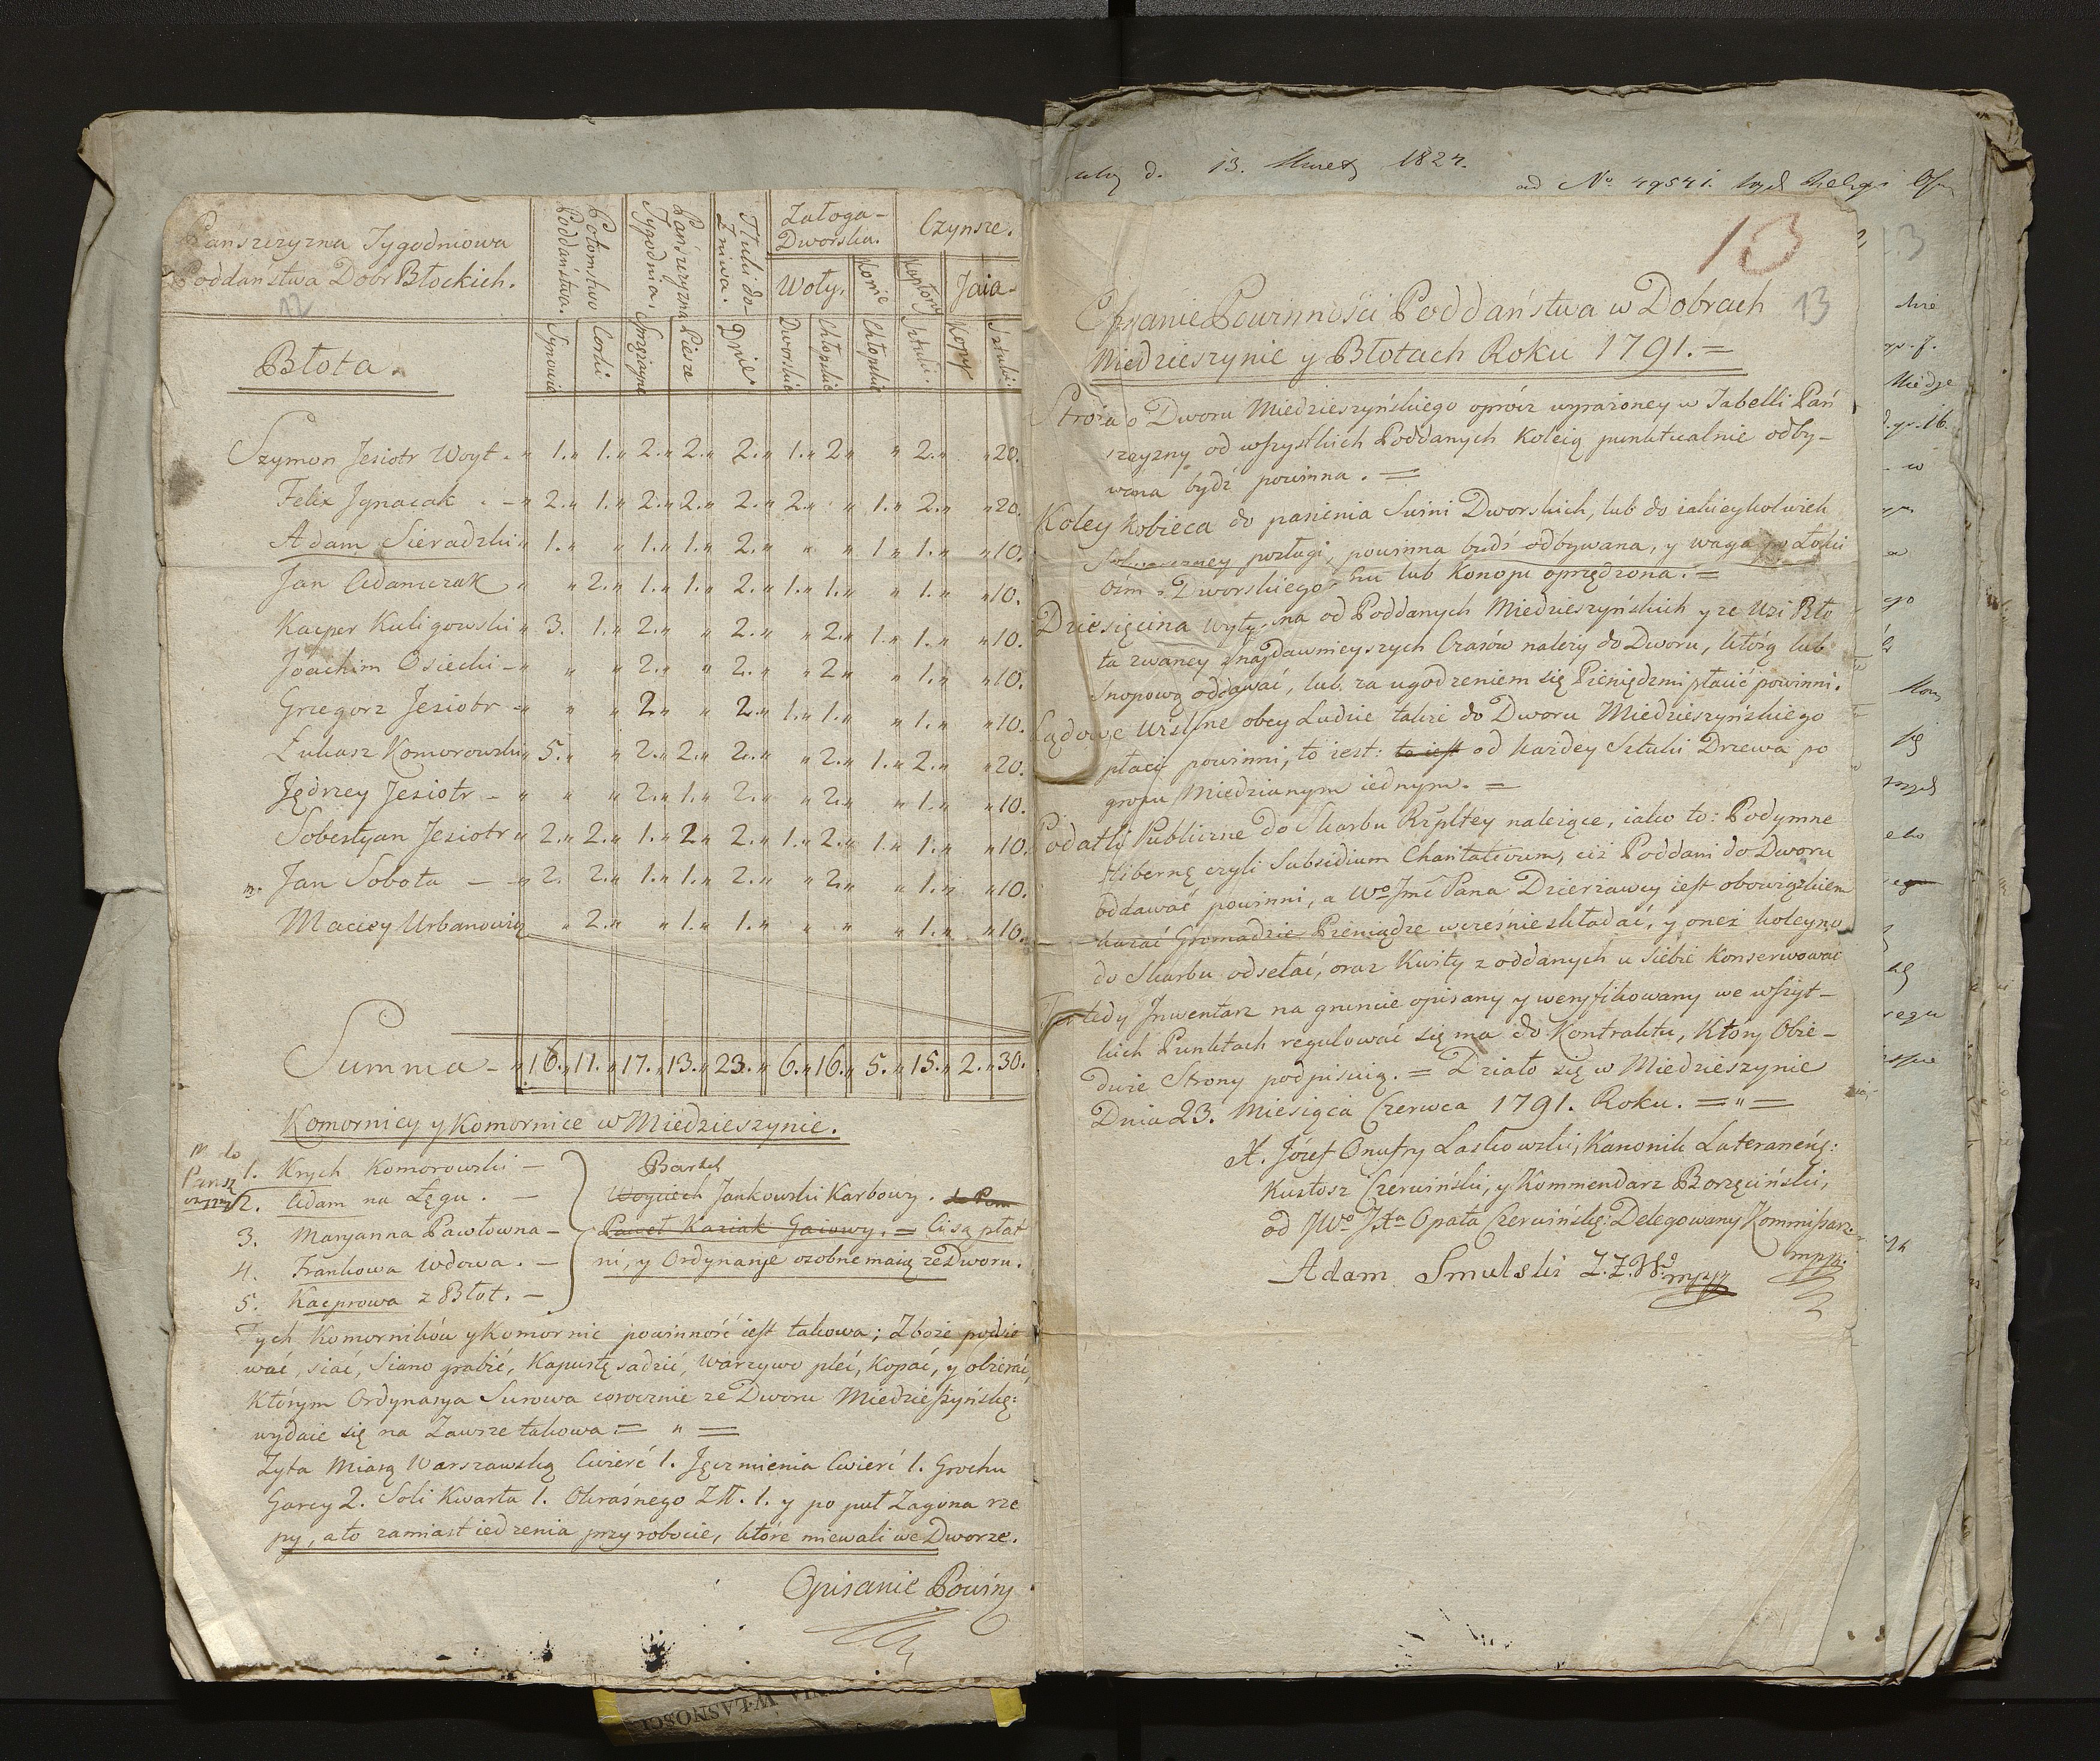 Pańszczyzna Tygodniowa
Poddaństwa Dobr Błockich.
12
Błota.
Poddaństwa. Potomstwo Tygodnia. Pańszczyzna Tłuki do Żniwa. Załoga Dworska. Czynsze.
Woły. Konie Kapłony Jaia
Synowie Corki Sprzężayne Piesze Dnie. Dworskie Chłopskie Chłopskie Sztuki. Kopy Sztuki.
Szymon Jesiotr Woyt - " 1. " 1. " 2. " 2. " 2. " 1. " 2 " " 2. " " 20.
Felix Jgnacak - " 2. " 1. " 2. " 2. " 2. " 2. " " 1. " 2. " " 20.
Adam Sieradzki " 1. " " 1. " 1. " 2. " " " 1 " 1. " " 10.
Jan Adamczak " " 2. " 1. " 1. " 2. " 1. " 1. " " 1. " " 10.
Kacper Kuligowski " 3. 1. " 2. " " 2. " " 2. " 1. " 1. " " 10.
Joachim Osiecki - " " " 2. " " 2. " " 2 " " 1. " " 10.
Grzegorz Jesiotr - " " " 2. " " 2. " 1. " 1. " " 1. " " 10.
Łukasz Komorowski " 5. " " 2. " 2. " 2. " " 2. " 1. " 2. " " 20.
Jędrzey Jesiotr - " " " 2. " 1. " 2. " " 2. " " 1. " " 10.
Sobestyan Jesiotr " 2. " 2. " 1. " 2 " 2. " 1. " 2. " 1. " 1. " " 10.
Jan Sobota - " 2. 2. " 1. " 1. " 2. " " 2. " " 1. " " 10.
Maciey Urbanowicz " 2. " " 1. " 1. " " " " 1. " " 10.
Summa - " 16. " 11. " 17. " 13. " 23. " 6. " 16. " 5. " 15. " 2. " 30.
Komornicy y Komornice w Miedzieszynie.
1. Krych Komorowski -
2. Adam na Łęgu. -
3. Maryanna Pawłowna -
4. Frankowa wdowa. -
5. Kacprowa z Błot. -
Bartek
Woyciech Jankowski Karbowy.
Paweł Kaziak Gaiowy. = Ci są płat
ni, y Ordynarye osobne maią ze Dworu.
Tych Komorników y Komornic powinność iest takowa; Zboże podsie
wać, siać, Siano grabić, Kapustę sadzić, Warzywo pleć, Kopać, y obierać,
Którym Ordynarya Surowa corocznie ze Dworu Miedzieszyńskg:
wydaie się na Zawsze takowa = " =
Żyta Miarą Warszawską Cwierć 1. Jęczmienia Cwierć 1. Grochu
Garcy 2. Soli Kwarta 1. Okraśnego Zł. 1. y po puł Zagona rze
py, a to zamiast iedzenia przy robocie, które miewali we Dworze.
Opisanie Powiny
13. 1824.
13
13
Opisanie Powinności Poddaństwa w Dobrach
Miedzieszynie y Błotach Roku 1791. =
Stroża o Dworu Miedzieszyńskiego oprócz wyrażoney w Tabelli Pań
szczyzny od wszystkich Poddanych Koleią punktualnie odby-
wana bydź powinna. =
Koley Kobieca do pasienia Świni Dworskich, lub do iakieykolwiek
posługi, powinna bydź odbywana, y waga po Łokci
ośm z Dworskiego Lnu lub Konopi oprzędzona. =
Dziesięcina wytyczna od Poddanych Miedzieszyńskich y ze Wsi Bło
ta zwaney z naydawnieyszych Czasów należy do Dworu, którą lub
Snopową oddawać, lub za ugodzeniem się Pieniędzmi płacić powinni.
Lądowe Wiślne obcy Ludzie także do Dworu Miedzieszyńskiego
płacić powinni, to iest: to iest od każdey Sztuki Drzewa po
groszu Miedzianym iednym. =
Podatki Publiczne do Skarbu Rzpltey należące, iako to: Podymne
Hibernę czyli Subsidium Charitativum, ciż Poddani do Dworu
oddawać powinni, a Wo Jmć Pana Dzierżawcy iest obowiązkiem
kazać Gromadzie Pieniądze wcześnie składać, y oneż koleyno
do Skarbu odsełać, oraz Kwity z oddanych u siebie Konserwować
Ten tedy Jnwentarz na gruncie opisany y weryfikowany we wszyst-
kich Punktach regulować się ma do Kontraktu, Który Obie-
dwie Strony podpisuią. = Działo się w Miedzieszynie
Dnia 23. Miesiąca Czerwca 1791. Roku. = " =
X. Józef Onufry Laskowski, Kanonik Lateraneńs:
Kustosz Czerwiński, y Kommendarz Borzęciński,
od JWo JXa Opata Czerwińskg: Delegowany Kommissarz.
mppa.
Adam Smulski Z.Z.W. mpp